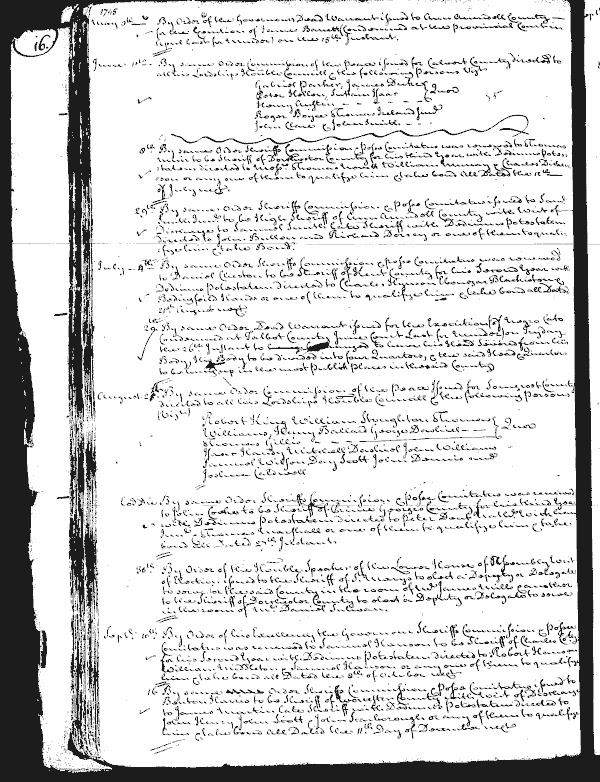 1745
16.
May 3d By Order of the Governour Dead Warrant issued to Ann Arundell County
for the Execution of James Barrett Condemned at the Provincial Court in
April last for Murder on the 15th Instant.
June By same Order Commission of the Peace issued for Calvert County directed to
all his Lordships Honble Council & the following Persons Vizt
Gabriel Parker, James Duke
Quor
Roger Boyce Thomas Ireland Junr
John Clare & John Smith
8th By same Order Sheriffs Commission & Posse Comitatus was renewed to Thomas
to be Sheriff of Dorchester County for his third Year with Dedimus Potes
tatem directed to Messrs Thomas William Murray & Charles Dickin
son or any one of them to qualify him & take bond All Dated the
of July next.
29th By same Order Sheriffs Commission & Posse Comitatus issued to
to be High Sheriff of Ann Arundell County with Writ of
Discharge to Samuel Smith late Sheriff with Dedimus Potestatem
directed to John Bullen and Richard Dorsey or one of them to quali
fye him & take Bond.
July 4th By same Order Sheriffs Commission & Posse Comitatus was renewed
to Daniel Cheston to be Sheriff of Kent County for his Second Year with
Dedimus Potestatem directed to Charles Hynson Ebenezar Blackiston
Bedingfield Hands or any one of them to qualify him & take bond all Dated
August next
20 By same Order, Dead Warrant issued for the Execution of Negro Cato
Condemned at Talbot County June Court last for Murder on Friday
the 26th Instant to be hanged his Head Severed from his
Body, the Body to be divided into four Quarters, & the said Head & Quarters
to be hung up in the most Publick places in the said County
August By same Order Commission of the Peace Issued for Somerset County
directed to all his Lordships Honble Council & the following Persons
(Vizt)
Robert King William Stoughton Thomas
Williams, Henry Ballard George Dashiell
Quor
Thomas Gillis
Isaac Handy Mitchell Dashiell John Williams
Samuel Wilson Day Scott John Dennis Junr
Joshua Caldwell
Eod Die By same Order Sheriffs Commission & Posse Comitatus was renewed
to John Cooke to be Sheriff of Prince Georges County for his third Year
with Dedimus Potestatem directed to Peter
Marshall or one of them to qualify him & take
bond Dated 27th Instant.
30th By Order of the Honble Speaker of the Lower House of Assembly Writ
of Election issued to the Sheriff of St Marys to elect a Deputy or Delegate
to serve for the said County in the room of Mr James Mills & another
to the Sheriff of Dorchester County to elect a Deputy or Delegate to serve
in the room of Mr Daniel Sulivan.
Septr 10th By Order of his Excellency the Governour Sheriffs Commission & Posse
Comitatus was renewed to Samuel Hanson to be Sheriff of Charles County
for his Second Year with Dedimus Potestatem directed to Robert Hanson
William Middleton & Samuel Hanson or any one of them to qualify
him & take bond all Dated the 8th of October next
16 By same Order Sheriffs Commission & Posse Comitatus issued to
Benton Harris to be Sheriff of Worcester County with Writ of Discharge
to James Martin late Sheriff with Dedimus Potestatem directed to
John Henry John Scott & John Scarborough or any of them to qualify
him & take bond All Dated the 11th Day of December next